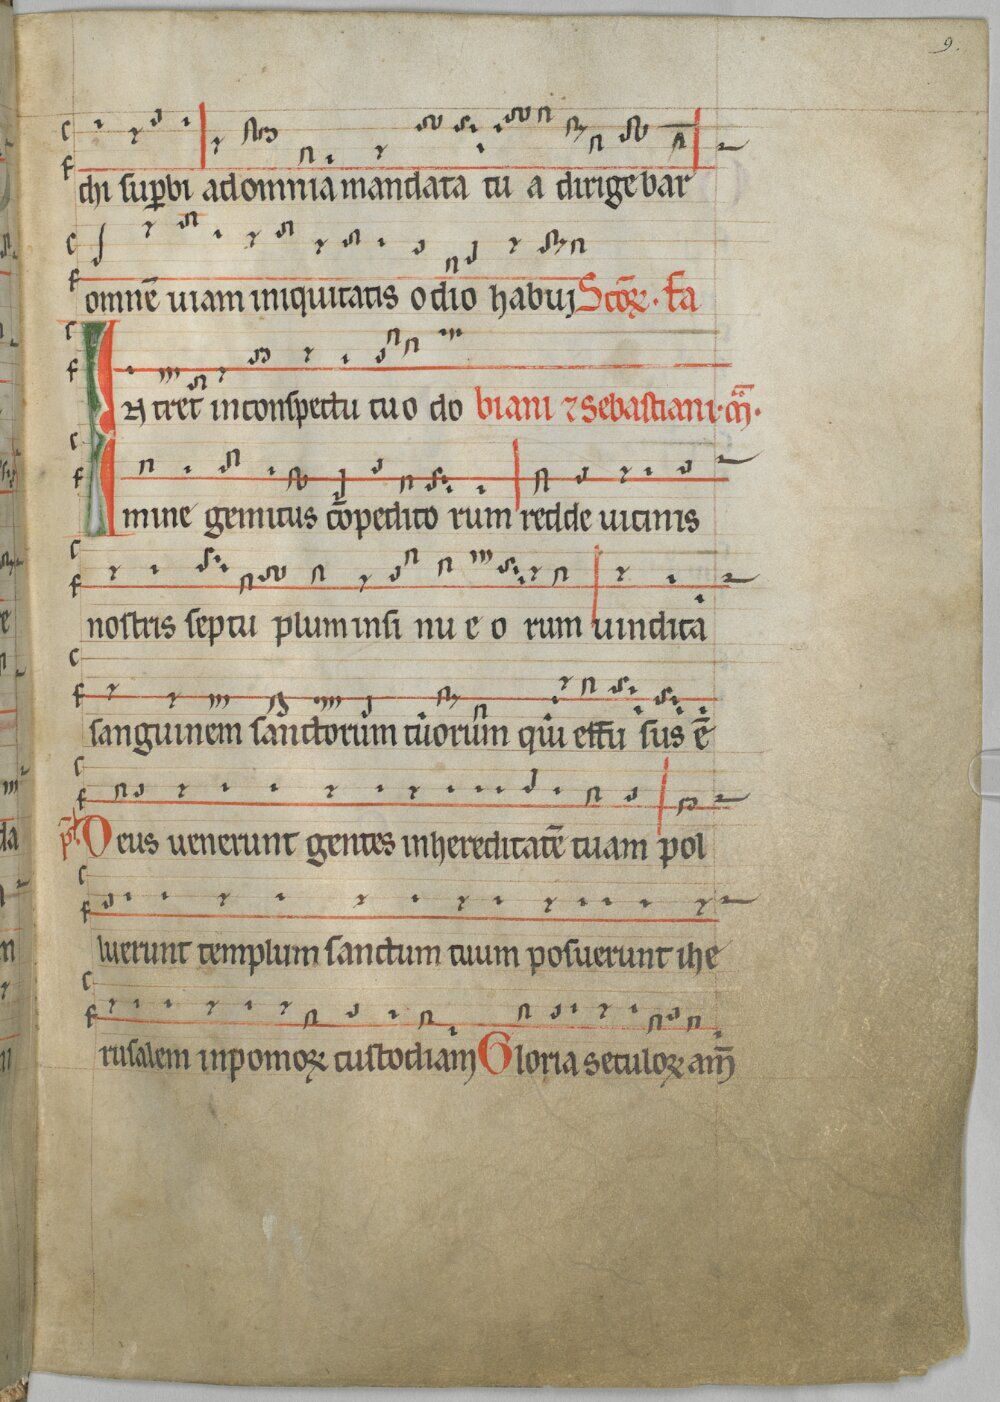 9.
chi sup̱bi ad omnia mandata tu a dirigebar
omnē uiam iniquitatis odio habui Scōꝝ. Fa
Intret in conspectu tuo do biani ⁊ Sebastiani. m̄.
mine gemitus cōpedito rum redde uicinis
nostris septu plum in si nu e o rum uindica
sanguinem sanctorum tuorum qui effu sus ē
p̄s. Deus uenerunt gentes in hereditatē tuam pol
luerunt templum sanctum tuum posuerunt ihe
rusalem in pomoꝝ custodiam Gloria seculoꝝ am̄